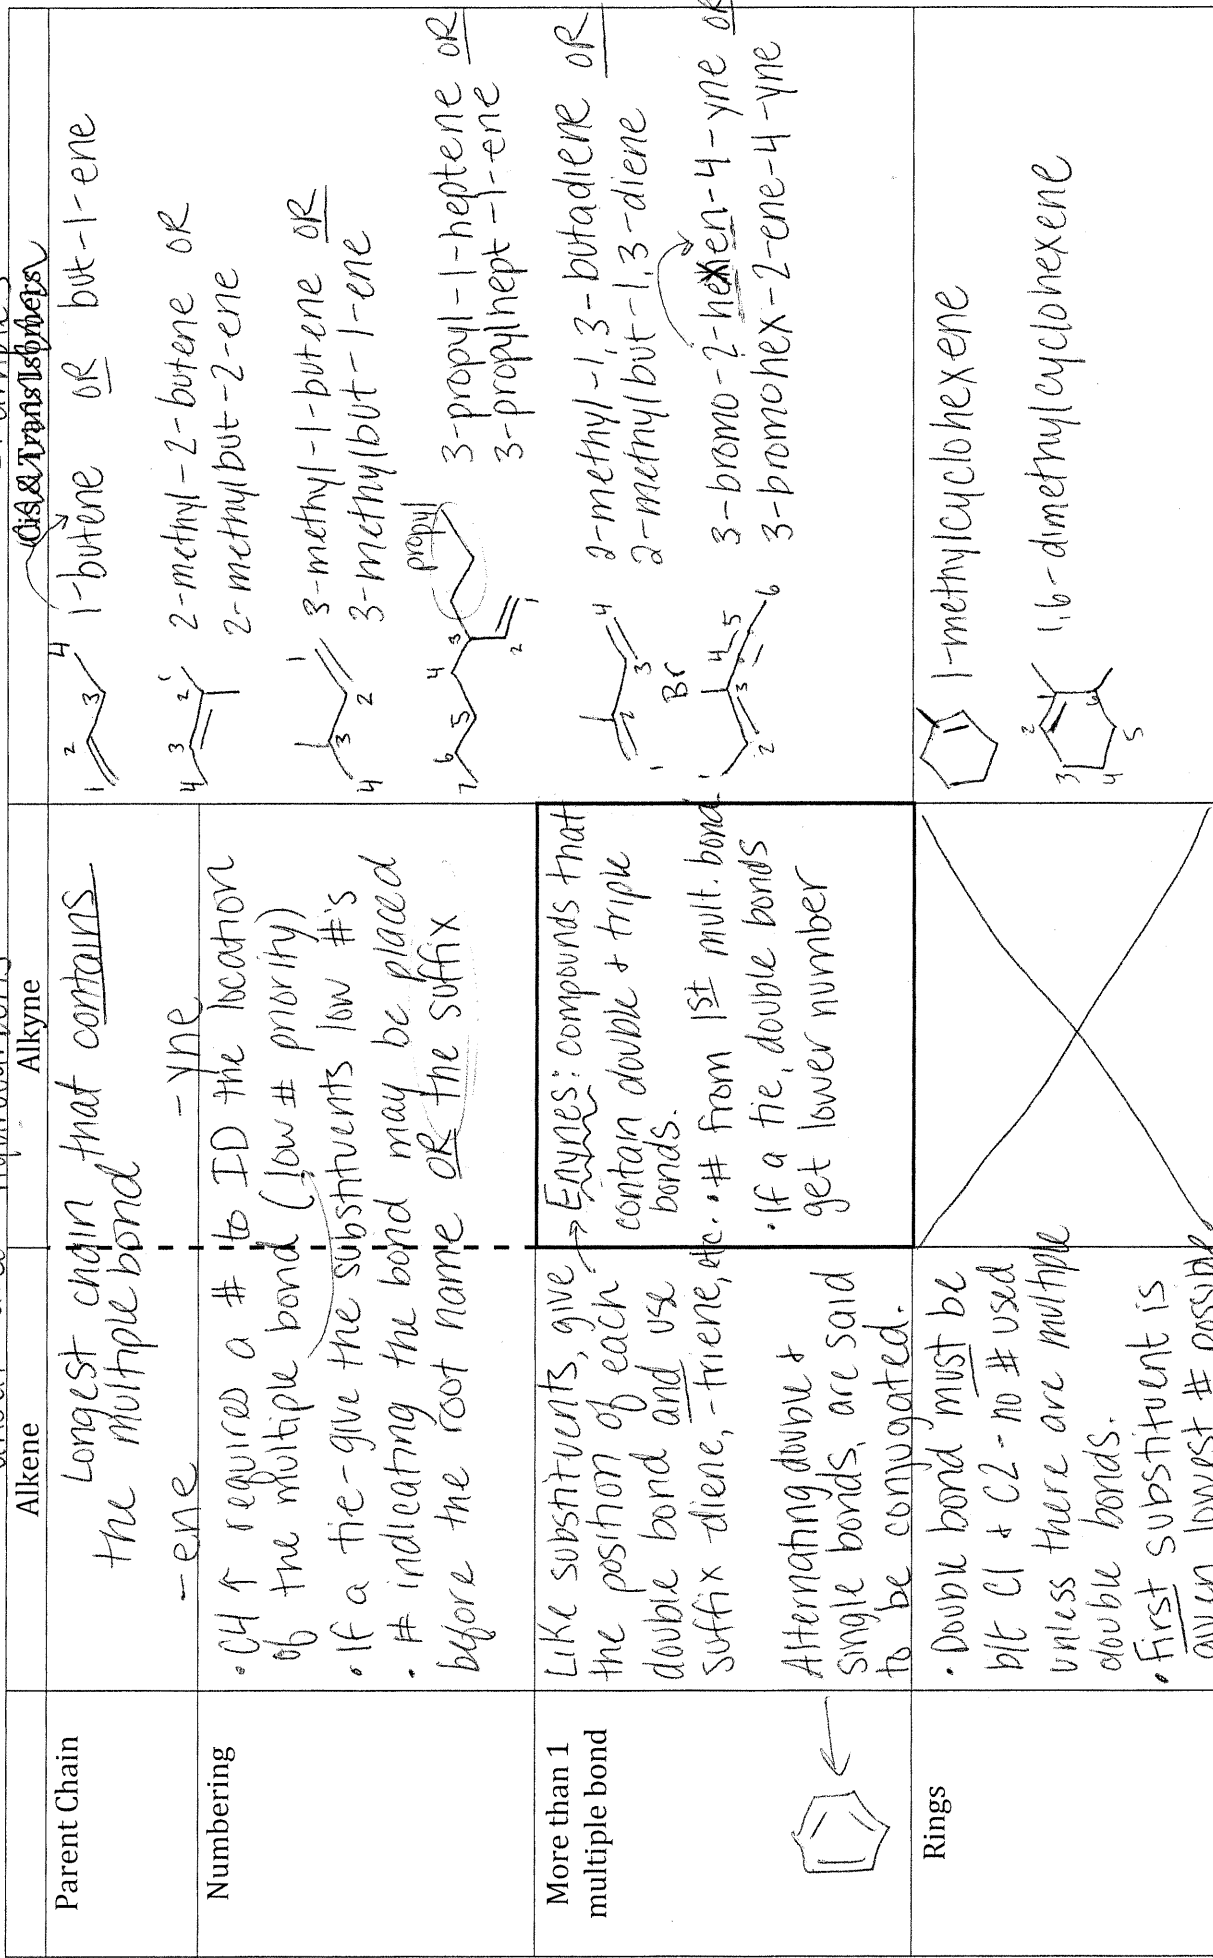 Alkene
Alkyne
Cis & Trans Isomers
Parent Chain
Longest chain that contains
the multiple bond
-ene
-yne
1 2 3 4
1-butene OR but-1-ene
Numbering
• C4 ↑ requires a # to ID the location
of the multiple bond (low # priority)
• If a tie - give the substituents low #'s
• # indicating the bond may be placed
before the root name OR the suffix
4 3 2 1
2-methyl-2-butene OR
2-methylbut-2-ene
4 3 2 1
3-methyl-1-butene OR
3-methylbut-1-ene
propyl
7 6 5 4 3 2 1
3-propyl-1-heptene OR
3-propylhept-1-ene
More than 1
multiple bond
Like substituents, give
the position of each
double bond and use
suffix -diene, -triene, etc.
Alternating double &
single bonds, are said
to be conjugated.
→ Enynes: compounds that
contain double & triple
bonds.
• # from 1st mult. bond
• If a tie, double bonds
get lower number
1 2 3 4
2-methyl-1,3-butadiene OR
2-methylbut-1,3-diene
Br
1 2 3 4 5 6
3-bromo-2-hexen-4-yne OR
3-bromohex-2-ene-4-yne
Rings
• Double bond must be
b/t C1 & C2 - no # used
unless there are multiple
double bonds.
• First substituent is
given lowest # possible
1-methylcyclohexene
1 2 3 4 5 6
1,6-dimethylcyclohexene